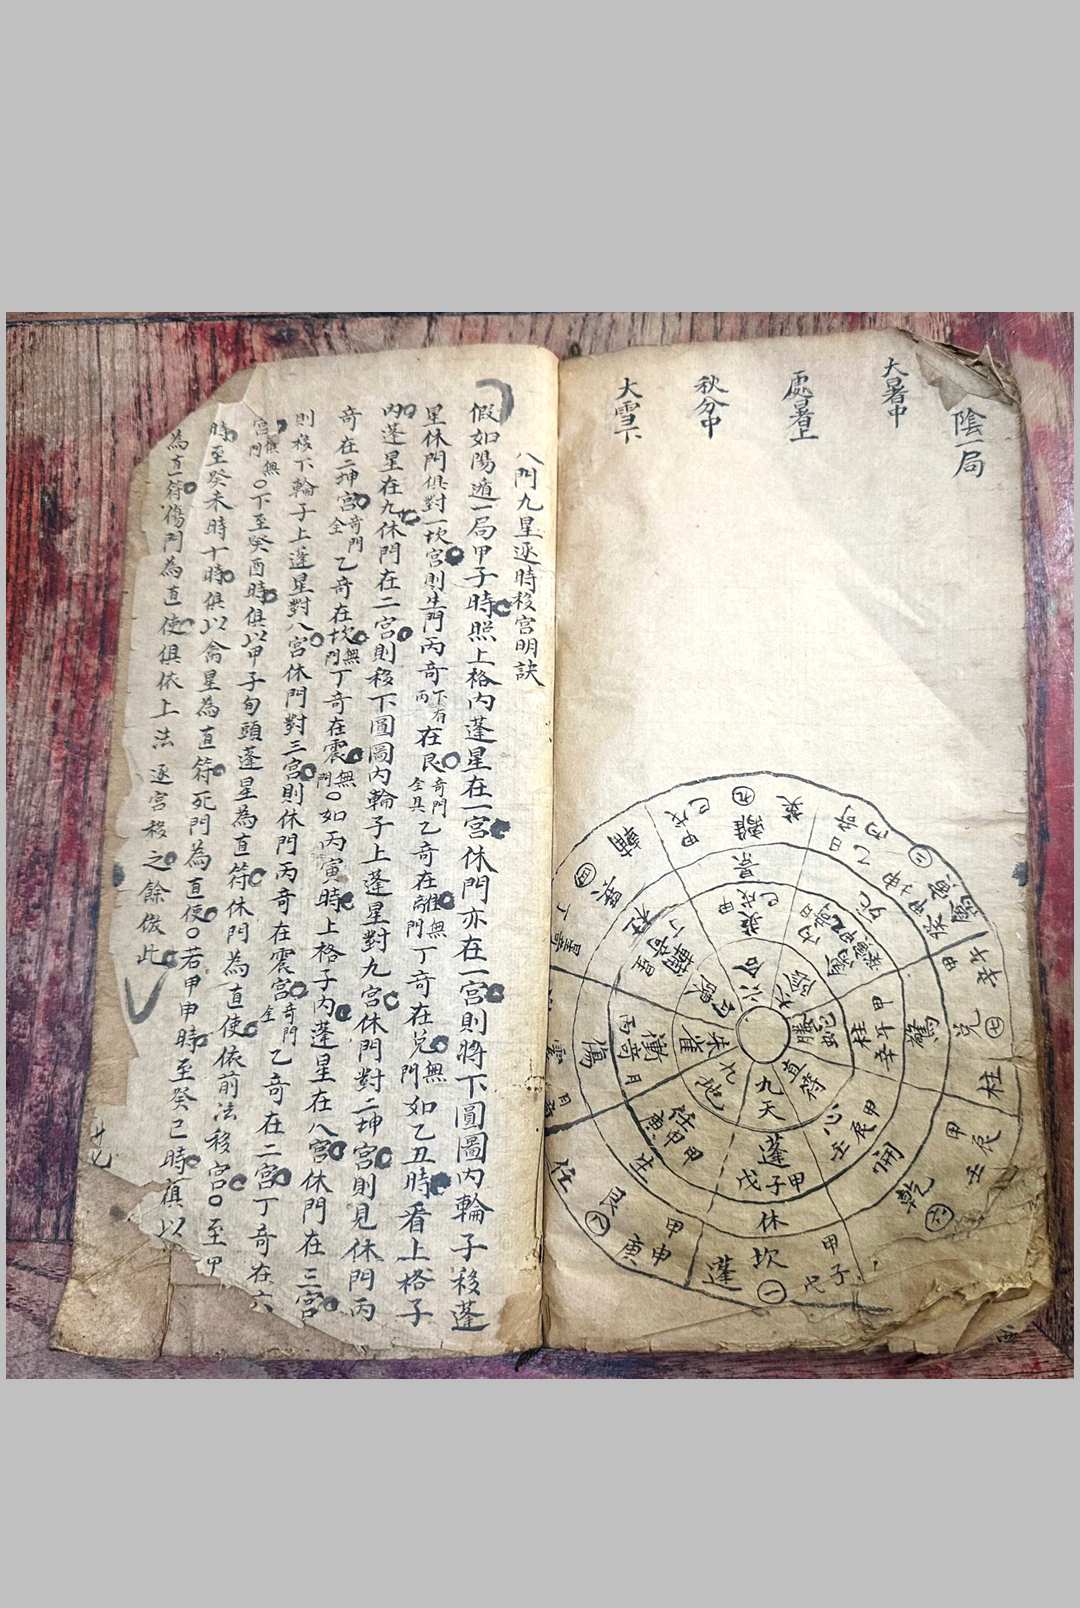 陰一局
大暑中
處暑上
秋分中
大雪下
英
離
九
甲戌己
景
英
甲戌己
六合
乙日
丙奇
坤
二
死
螣蛇
柱
甲午辛
驚
兌
七
柱
甲午辛
直符
心
甲辰壬
開
乾
六
甲辰壬
九天
蓬
甲子戊
休
坎
一
蓬
甲子戊
九地
任
甲申庚
生
艮
八
任
甲申庚
朱雀
衝
丙奇月
傷
輔
四
丁
星奇
八門九星逐時移宮明訣
假如陽遁一局甲子時照上格內蓬星在一宮休門亦在一宮則將下圓圖內輪子移蓬
星休門俱對一坎宮則生門丙奇下有丙在艮奇門全具乙奇在離無門丁奇在兌無門如乙丑時看上格子
內蓬星在九休門在二宮則移下圓圖內輪子上蓬星對九宮休門對二坤宮則見休門丙
奇在二坤宮奇門全乙奇在坎無門丁奇在震無門○如丙寅時上格子內蓬星在八宮休門在三宮
則移下輪子上蓬星對八宮休門對三宮則休門丙奇在震宮奇門全乙奇在二宮丁奇在六
宮俱無門○下至癸酉時俱以甲子旬頭蓬星為直符休門為直使依前法移宮○至甲
時至癸未時十時俱以禽星為直符死門為直使○若甲申時至癸巳時俱以
為直符傷門為直使俱依上法逐宮移之餘倣此
廿七